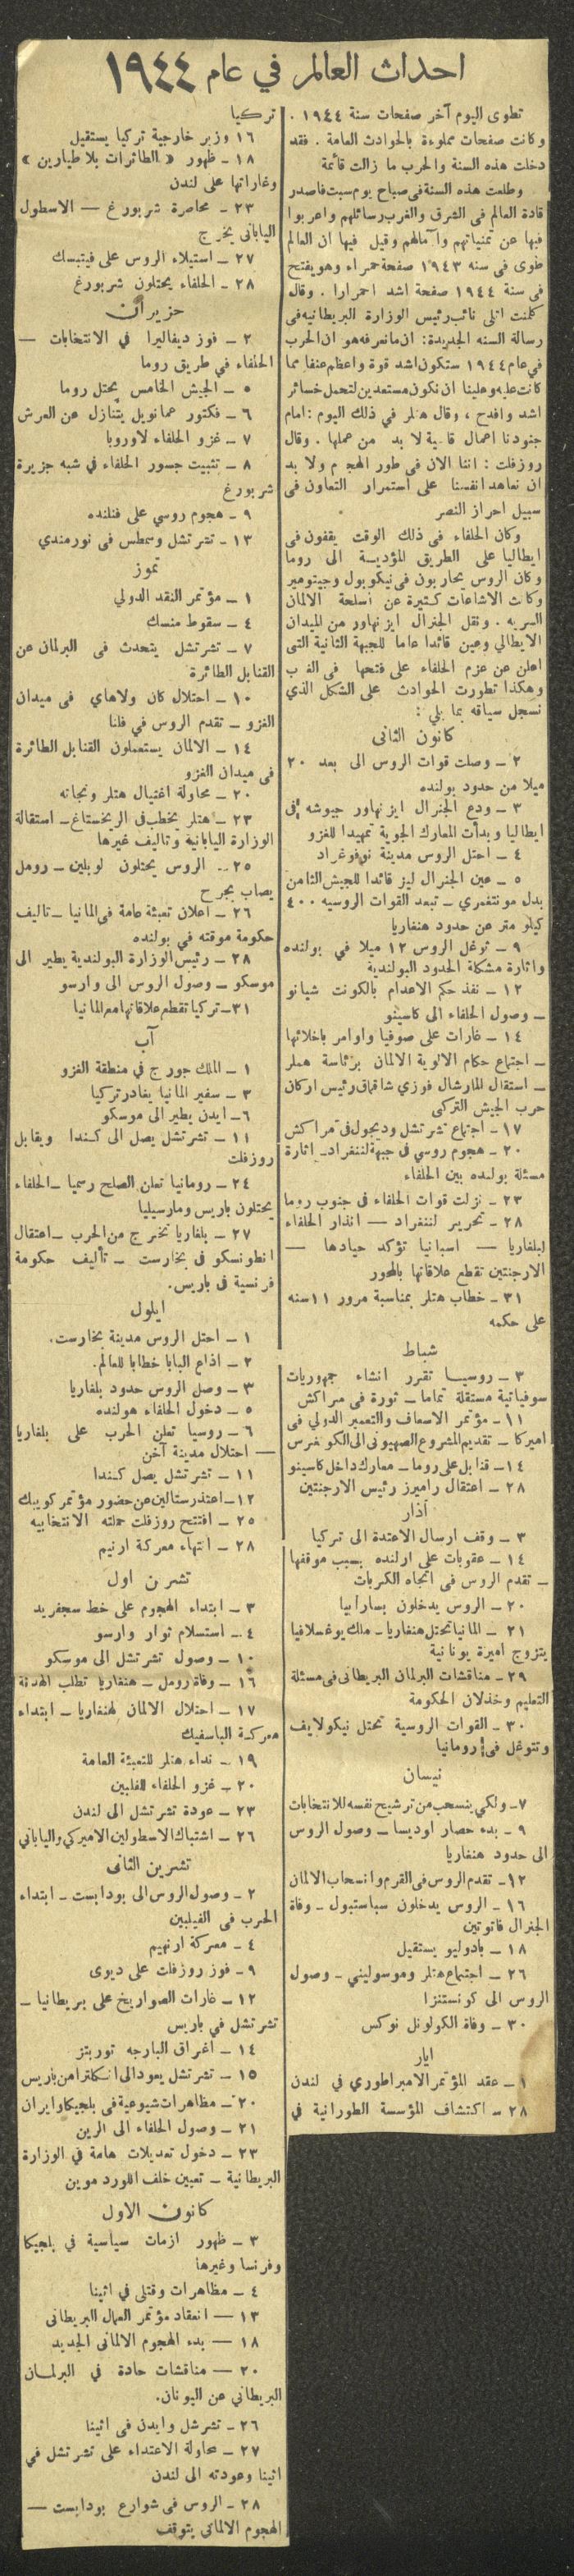 احداث العالم في عام ١٩٤٤
تطوى اليوم آخر صفحات سنة ١٩٤٤ .
وكانت صفحات مملوءة بالحوادث العامة . فقد
دخلت هذه السنة والحرب ما زالت قائمة
وطلعت هذه السنة فى صباح يوم سبت فاصدر
قادة العالم فى الشرق والغرب رسائلهم واعربوا
فيها عن تمنياتهم وآمالهم وقيل فيها ان العالم
طوى فى سنه ١٩٤٣ صفحة حمراء وهو يفتح
فى سنة ١٩٤٤ صفحة اشد احمرارا . وقال
كلمنت اتلى نائب رئيس الوزارة البريطانيه فى
رسالة السنه الجديدة: ان ما نعرفه هو ان الحرب
في عام ١٩٤٤ ستكون اشد قوة واعظم عنفا مما
كانت عليه وعلينا ان نكون مستعدين لتحمل خسائر
اشد وافدح ، وقال هتلر في ذلك اليوم : امام
جنودنا اعمال لا بد من عملها . وقال
روزفلت : اننا الان فى طور الهجوم ولا بد
ان نعاهد انفسنا على استمرار التعاون فى
سبيل احراز النصر
وكان الحلفاء فى ذلك الوقت يقفون فى
ايطاليا على الطريق المؤدية الى روما
وكان الروس يحاربون فى نيكوبول وجيتومير
وكانت الاشاعات كثيرة عن اسلحة الالمان
السريه . ونقل الجنرال ايزنهاور من الميدان
الايطالي وعين قائدا عاما للجبهة الثانية التى
اعلن عن عزم الحلفاء على فتحها فى الغرب
وهكذا تطورت الحوادث على الشكل الذي
نسجل سياقه بما يلي :
كانون الثانى
٢ ـ وصلت قوات الروس الى بعد ٢٠
ميلا من حدود بولنده
٣ ـ ودع الجنرال ايزنهاور جيوشه فى
ايطاليا وبدأت المعارك الجوية تمهيدا للغزو
٤ ـ احتل الروس مدينة نوفوغراد
٥ ـ عين الجنرال ليز قائدا للجيش الثامن
بدل مونتغمرى ـ تبعد القوات الروسيه ٤٠٠
كيلو متر عن حدود هنغاريا
٩ ـ توغل الروس ١٢ ميلا في بولنده
واثارة مشكلة الحدود البولندية
١٢ ـ نفذ حكم الاعدام بالكونت شيانو
ـ وصول الحلفاء الى كاسينو
١٤ ـ غارات على صوفيا واوامر باخلائها
ـ اجتماع حكام الالوية الالمان برئاسة هتلر
ـ استقال المارشال فوزي شاقماق رئيس اركان
حرب الجيش التركى
١٧ ـ اجتماع تشرتشل وديجول فى مراكش
٢٠ ـ هجوم روسي فى جبهة لننغراد ـ اثارة
مسئلة بولنده بين الحلفاء
٢٣ ـ نزلت قوات الحلفاء فى جنوب روما
٢٨ ـ تحرير لننغراد — انذار الحلفاء
لبلغاريا — اسبانيا تؤكد حيادها —
الارجنتين تقطع علاقاتها بالمحور
٣١ ـ خطاب هتلر بمناسبة مرور ١١ سنه
على حكمه
شباط
٣ ـ روسيا تقرر انشاء جمهوريات
سوفياتية مستقلة تماما ـ ثورة فى مراكش
١١ ـ مؤتمر الاسعاف والتعمير الدولي فى
اميركا ـ تقديم المشروع الصهيونى الى الكونغرس
١٤ ـ قنابل على روما ـ معارك داخل كاسينو
٢٨ ـ اعتقال راميرز رئيس الارجنتين
آذار
٣ ـ وقف ارسال الاعتدة الى تركيا
١٤ ـ عقوبات على ارلنده بسبب موقفها
ـ تقدم الروس فى اتجاه الكربات
٢٠ ـ الروس يدخلون بسارابيا
٢١ ـ المانيا تحتل هنغاريا ـ ملك يوغسلافيا
يتزوج اميرة يونانية
٢٩ ـ مناقشات البرلمان البريطانى فى مسئلة
التعليم وخذلان الحكومة
٣٠ ـ القوات الروسية تحتل نيكولايف
وتتوغل فى رومانيا
نيسان
٧ ـ ولكي ينسحب من ترشيح نفسه للانتخابات
٩ ـ بدء حصار اوديسا ـ وصول الروس
الى حدود هنغاريا
١٢ ـ تقدم الروس فى القرم وانسحاب الالمان
١٦ ـ الروس يدخلون سباستبول ـ وفاة
الجنرال فاتوتين
١٨ ـ بادوليو يستقيل
٢٦ ـ اجتماع هتلر وموسوليني ـ وصول
الروس الى كونستنزا
٣٠ ـ وفاة الكولونل نوكس
ايار
١ ـ عقد المؤتمر الامبراطوري في لندن
٢٨ ـ اكتشاف المؤسسة الطورانية في
تركيا
١٦ وزير خارجية تركيا يستقيل
١٨ ـ ظهور « الطائرات بلا طيارين »
وغاراتها على لندن
٢٣ ـ محاصرة شربورغ — الاسطول
اليابانى يخرج
٢٧ ـ استيلاء الروس على فيتبسك
٢٨ ـ الحلفاء يحتلون شربورغ
حزيران
٢ ـ فوز ديفاليرا في الانتخابات —
الحلفاء في طريق روما
٥ ـ الجيش الخامس يحتل روما
٦ ـ فكتور عمانويل يتنازل عن العرش
٧ ـ غزو الحلفاء لاوروبا
٨ ـ تثبيت جسور الحلفاء في شبه جزيرة
شربورغ
٩ ـ هجوم روسي على فنلنده
١٣ ـ تشرتشل وسمطس فى نورمندي
تموز
١ ـ مؤتمر النقد الدولي
٤ ـ سقوط منسك
٧ ـ تشرتشل يتحدث فى البرلمان عن
القنابل الطائرة
١٠ ـ احتلال كان ولاهاي فى ميدان
الغزو ـ تقدم الروس في فلنا
١٤ ـ الالمان يستعملون القنابل الطائرة
فى ميدان الغزو
٢٠ ـ محاولة اغتيال هتلر ونجاته
٢٣ ـ هتلر يخطب فى الريخستاغ ـ استقالة
الوزارة اليابانية وتاليف غيرها
٢٥ ـ الروس يحتلون لوبلين ـ رومل
يصاب بجرح
٢٦ ـ اعلان تعبئة عامة فى المانيا ـ تاليف
حكومة موقته في بولنده
٢٨ ـ رئيس الوزارة البولندية يطير الى
موسكو ـ وصول الروس الى وارسو
٣١ ـ تركيا تقطع علاقاتها مع المانيا
آب
١ ـ الملك جورج في منطقة الغزو
٣ ـ سفير المانيا يغادر تركيا
٦ ـ ايدن يطير الى موسكو
١١ ـ تشرتشل يصل الى كندا ويقابل
روزفلت
٢٤ ـ رومانيا تعلن الصلح رسميا ـ الحلفاء
يحتلون باريس ومارسيليا
٢٧ ـ بلغاريا تخرج من الحرب ـ اعتقال
انطونسكو فى بخارست ـ تأليف حكومة
فرنسية فى باريس.
ايلول
١ ـ احتل الروس مدينة بخارست.
٢ ـ اذاع البابا خطابا للعالم.
٣ ـ وصل الروس حدود بلغاريا
٥ ـ دخول الحلفاء هولنده
٦ ـ روسيا تعلن الحرب على بلغاريا
— احتلال مدينة آخن
١١ ـ تشرتشل يصل كندا
١٢ ـ اعتذر ستالين عن حضور مؤتمر كويبك
٢٥ ـ افتتح روزفلت حملته الانتخابيه
٢٨ ـ انتهاء معركة ارنيم
تشرين اول
٣ ـ ابتداء الهجوم على خط سجفريد
٤ ـ استسلام ثوار وارسو
١٠ ـ وصول تشرتشل الى موسكو
١٦ ـ وفاة رومل ـ هنغاريا تطلب الهدنة
١٧ ـ احتلال الالمان لهنغاريا ـ ابتداء
معركة الباسفيك
١٩ ـ نداء هتلر للتعبئة العامة
٢٠ ـ غزو الحلفاء للفلبين
٢٣ ـ عودة تشرتشل الى لندن
٢٦ ـ اشتباك الاسطولين الاميركي والياباني
تشرين الثانى
٢ ـ وصول الروس الى بودابست ـ ابتداء
الحرب فى الفيليبين
٤ ـ معركة ارنهيم
٩ ـ فوز روزفلت على ديوى
١٢ ـ غارات الصواريخ على بريطانيا ـ
تشرتشل في باريس
١٤ ـ اغراق البارجه توربتز
١٥ ـ تشرتشل يعود الى انكلترا من باريس
٢٠ ـ مظاهرات شيوعية فى بلجيكا وايران
٢١ ـ وصول الحلفاء الى الرين
٢٣ ـ دخول تعديلات هامة في الوزارة
البريطانية ـ تعيين خلف اللورد موين
كانون الاول
٣ ـ ظهور ازمات سياسية في بلجيكا
وفرنسا وغيرها
٤ ـ مظاهرات وقتلى في اثينا
١٣ — انعقاد مؤتمر العمال البريطانى
١٨ — بدء الهجوم الالمانى الجديد
٢٠ — مناقشات حادة في البرلمان
البريطاني عن اليونان.
٢٦ ـ تشرشل وايدن فى اثينا
٢٧ ـ محاولة الاعتداء على تشرتشل في
اثينا وعودته الى لندن
٢٨ ـ الروس فى شوارع بودابست —
الهجوم الالمانى يتوقف